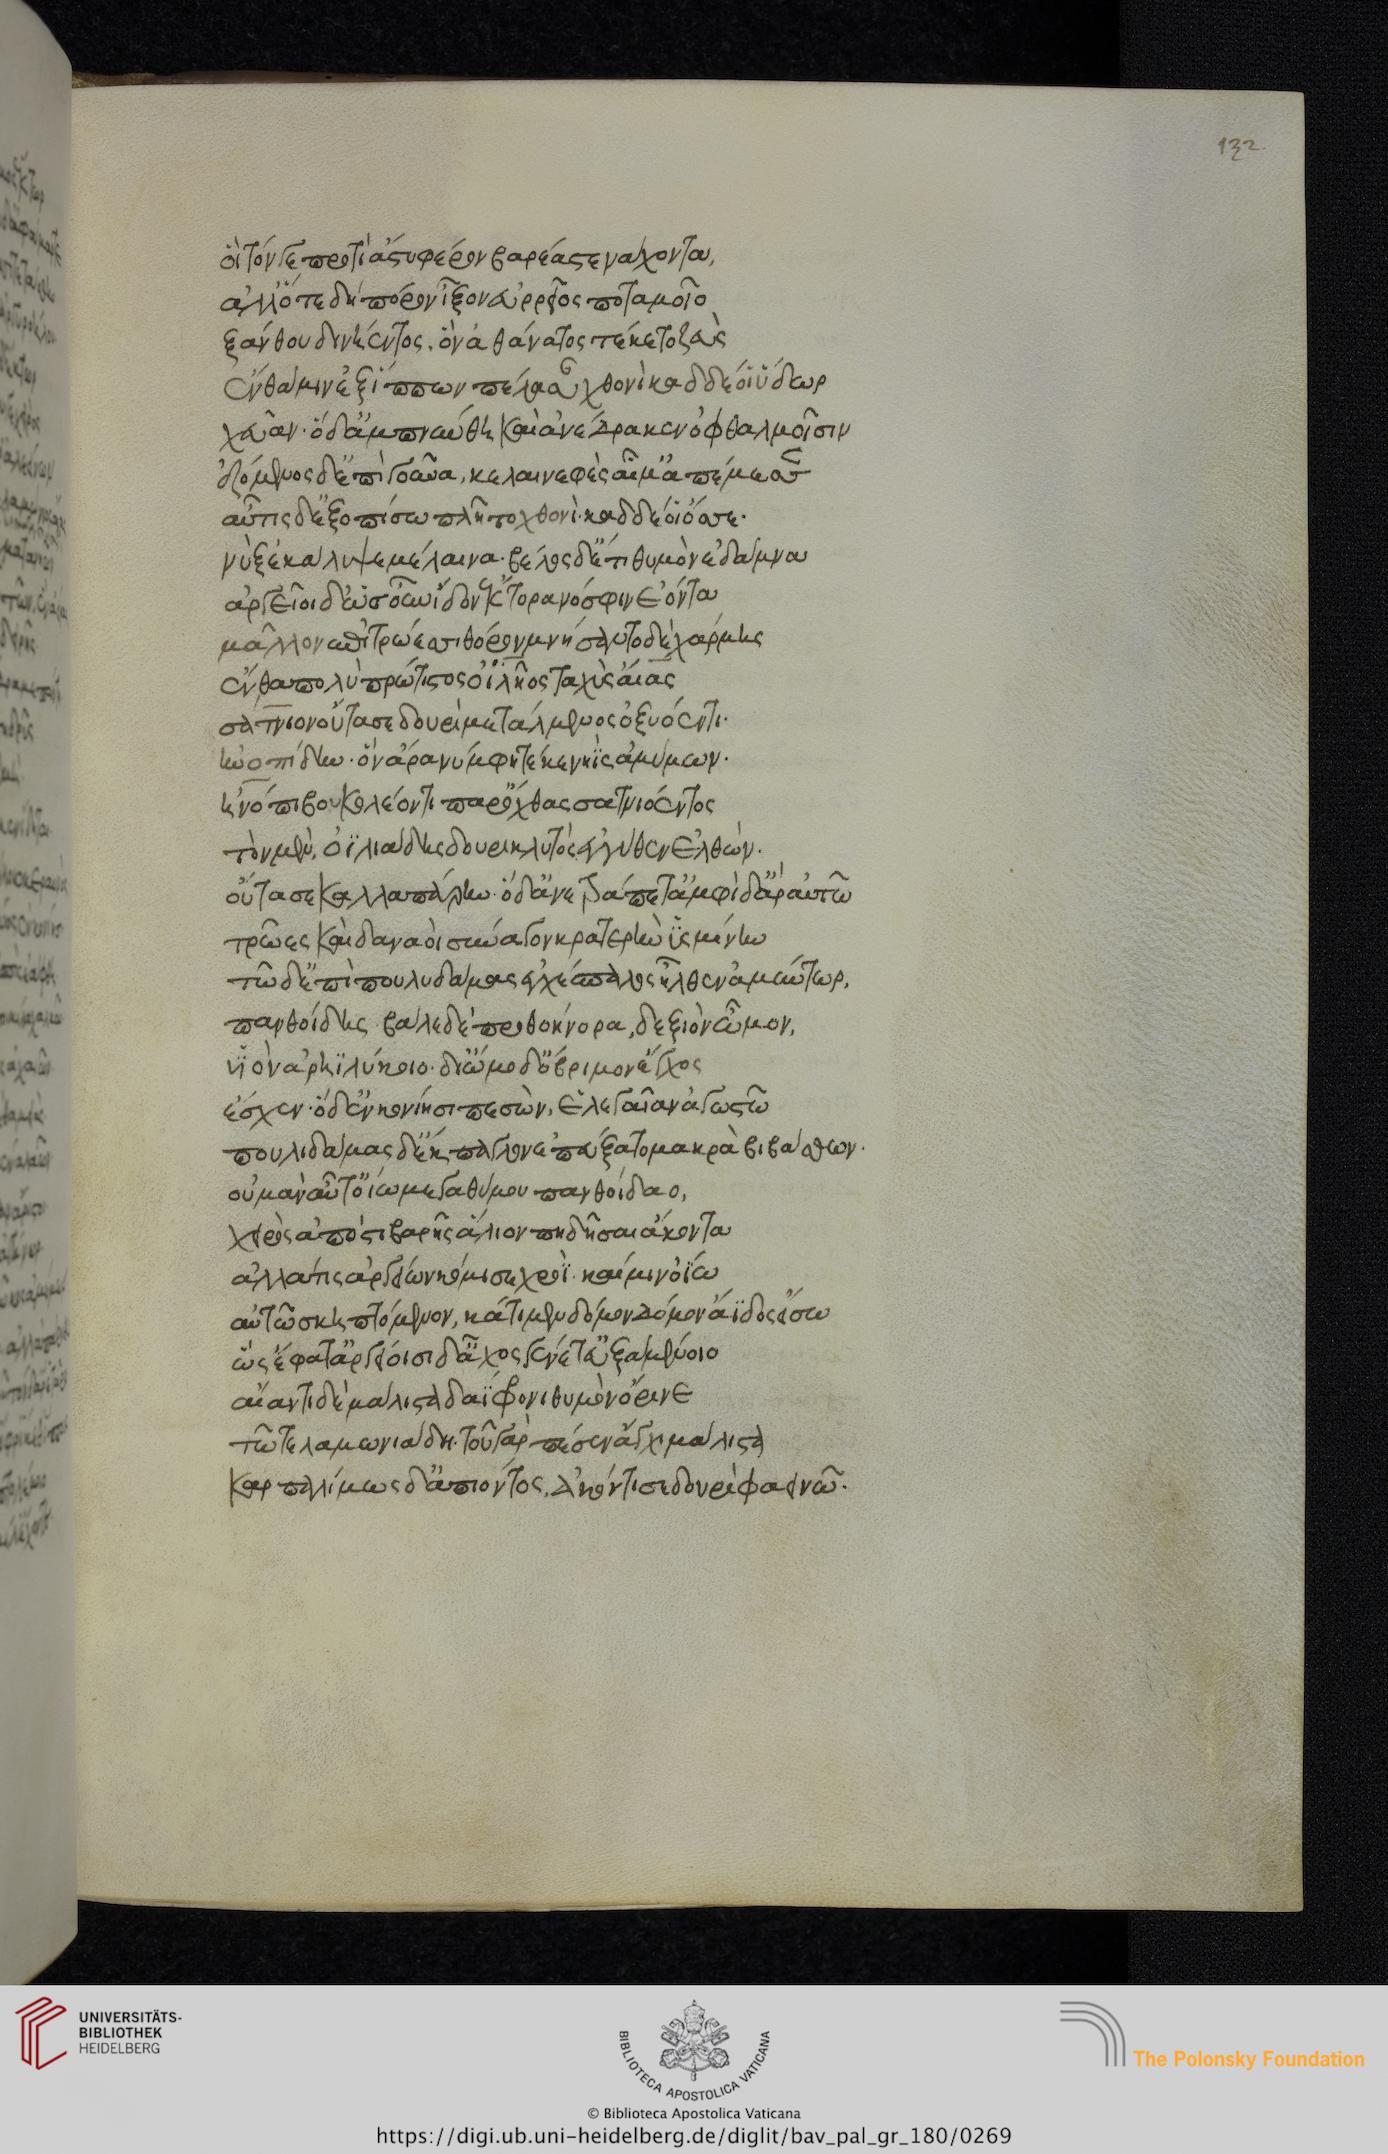 132
οἳ τόν γε προτὶ ἄστυ φέρον βαρέα στενάχοντα,
ἀλλ' ὅτε δὴ πόρον ἷξον ἐϋρρεῖος ποταμοῖο
ξάνθου δινήεντος, ὃν ἀθάνατος τέκετο ζεὺς
ἔνθά μιν ἐξ ἵππων πέλασαν χθονὶ καδδέ οἱ ὕδωρ
χεῦαν· ὁ δ' ἀμπνύνθη καὶ ἀνέδρακεν ὀφθαλμοῖσιν
ἑζόμενος δ' ἐπὶ γοῦνα, κελαινεφὲς αἷμ' ἀπέμεσσεν
αὖτις δ' ἐξοπίσω πλῆτο χθονὶ· καδδέ οἱ ὄσσε·
νὺξ ἐκάλυψε μέλαινα· βέλος δ' ἔτι θυμὸν ἐδάμνα
ἀργεῖοι δ' ὡς οὖν ἴδον ἕκτορα νόσφιν ἐόντα
μᾶλλον ἐπὶ τρώεσσι θόρον μνήσαντο δὲ χάρμης
ἔνθα πολὺ πρώτιστος ὀϊλῆος ταχὺς αἴας
σάτνιον οὔτασε δουρὶ μετάλμενος ὀξυόεντι·
ἠνοπίδην· ὃν ἄρα νύμφη τέκε νηῒς ἀμύμων·
ἤνοπι βουκολέοντι παρ' ὄχθας σατνιόεντος
τὸν μὲν, ὀϊλιάδης δουρικλυτὸς ἐγγύθεν ἐλθών·
οὔτασε καλλαπάρην· ὁ δ' ἀνετράπετ' ἀμφὶ δ' ἄρ' αὐτῶ
τρῶες καὶ δαναοὶ σύναγον κρατερὴν ὑσμίνην
τῶ δ' ἐπὶ πουλυδάμας ἐγχέσπαλος ἦλθεν ἀμύντωρ,
πανθοίδης· βάλε δὲ προθοήνορα, δεξιὸν ὦμον,
υἱὸν ἀρηϊλύκοιο· δι' ὤμου δ' ὄβριμον ἔγχος
ἔσχεν· ὁ δ' ἐν κονίησι πεσὼν, ἕλε γαῖαν ἀγοστῶ
πουλιδάμας δ' ἔκπαγλον ἐπεύξατο μακρὰ βιβάσθων·
οὐ μὰν αὖτ' ὀΐω μεγαθύμου πανθοίδαο,
χειρὸς ἄπο στιβαρῆς ἅλιον πηδῆσαι ἄκοντα
ἀλλά τις ἀργείων κόμισε χροῒ· καί μιν ὀΐω
αὐτῶ σκηπτόμενον, κάτιμεν δόμον δόμον ἄϊδος εἴσω
ὣς ἔφατ' ἀργείοισι δ' ἄχος γένετ' εὐξαμένοιο
αἴαντι δὲ μάλιστα δαΐφρονι θυμὸν ὄρινε
τῶ τελαμωνιάδη· τοῦ γὰρ πέσεν ἄγχι μάλιστα
καρπαλίμως δ' ἀπιόντος, ἀκόντισε δουρὶ φαεινῶ·
UNIVERSITÄTS-
BIBLIOTHEK
HEIDELBERG
BIBLIOTECA APOSTOLICA VATICANA
The Polonsky Foundation
© Biblioteca Apostolica Vaticana
https://digi.ub.uni-heidelberg.de/diglit/bav_pal_gr_180/0269